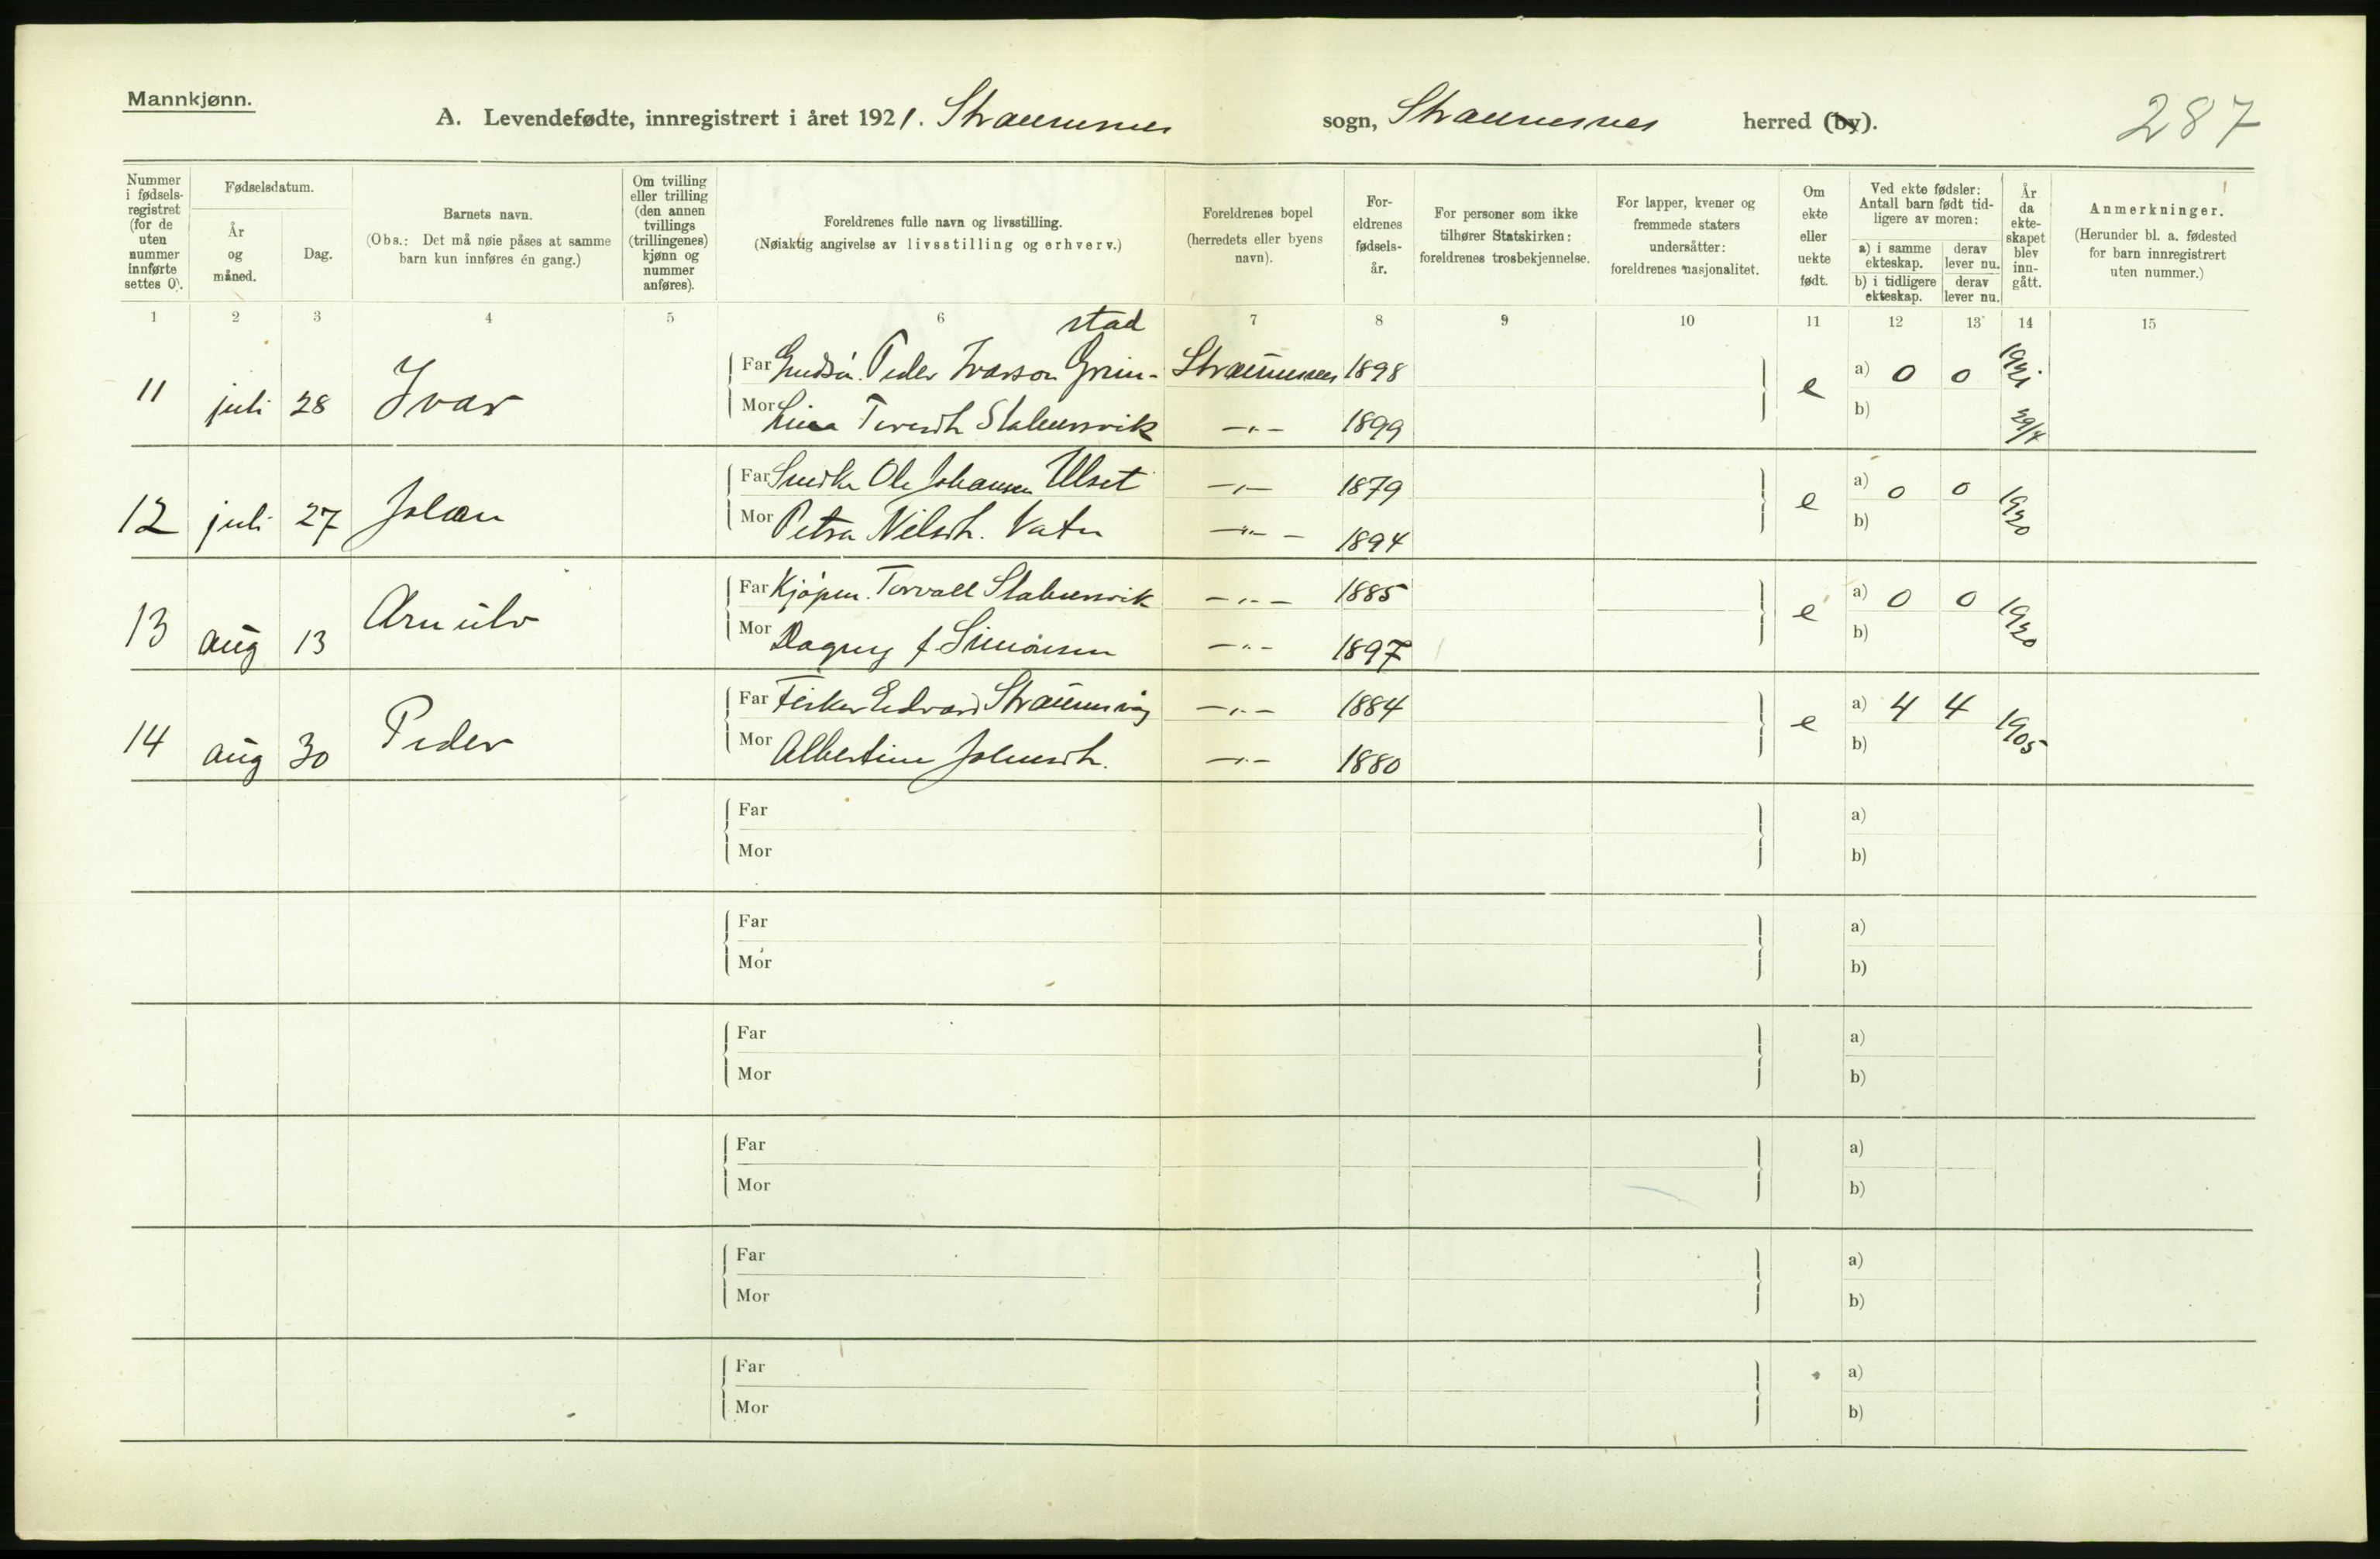 Mannkjønn.
A. Levendefødte, innregistrert i året 1921. Straumsnes sogn, Straumsnes herred (by).
287
Nummer i fødsels-registret (for de uten nummer innførte settes 0).
Fødselsdatum.
År og måned.
Dag.
Barnets navn.
(Obs.: Det må nøie påses at samme barn kun innføres én gang.)
Om tvilling eller trilling (den annen tvillings (trillingenes) kjønn og nummer anføres).
Foreldrenes fulle navn og livsstilling.
(Nøiaktig angivelse av livsstilling og erhverv.)
Foreldrenes bopel (herredets eller byens navn).
For-eldrenes fødsels-år.
For personer som ikke tilhører Statskirken: foreldrenes trosbekjennelse.
For lapper, kvener og fremmede staters undersåtter: foreldrenes nasjonalitet.
Om ekte eller uekte født.
Ved ekte fødsler: Antall barn født tid-ligere av moren:
a) i samme ekteskap.
derav lever nu.
b) i tidligere ekteskap.
derav lever nu.
År da ekte-skapet blev inn-gått.
Anmerkninger.
(Herunder bl. a. fødested for barn innregistrert uten nummer.)
1 2 3 4 5 6 7 8 9 10 11 12 13 14 15
stad
11 juli 28 Ivar Far Peder Ivarson Grim- Straumsnes 1898 e a) 0 0 1921
Mor Lina Stabursvik -"- 1899 b) 29/4
12 juli 27 Johan Far Ole Johansen Ulset -"- 1879 e a) 0 0 1920
Mor Petra Nilsdt. Vatn -"- 1894 b)
13 aug 13 Arnulv Far Kjøpm. Torvall Stabursvik -"- 1885 e a) 0 0 1920
Mor Dagny f. Simonsen -"- 1897 b)
14 aug 30 Peder Far Fisker Edvard Straumsvåg -"- 1884 e a) 4 4 1905
Mor Albertine Johnsdt. -"- 1880 b)
Far a)
Mor b)
Far a)
Mor b)
Far a)
Mor b)
Far a)
Mor b)
Far a)
Mor b)
Far a)
Mor b)